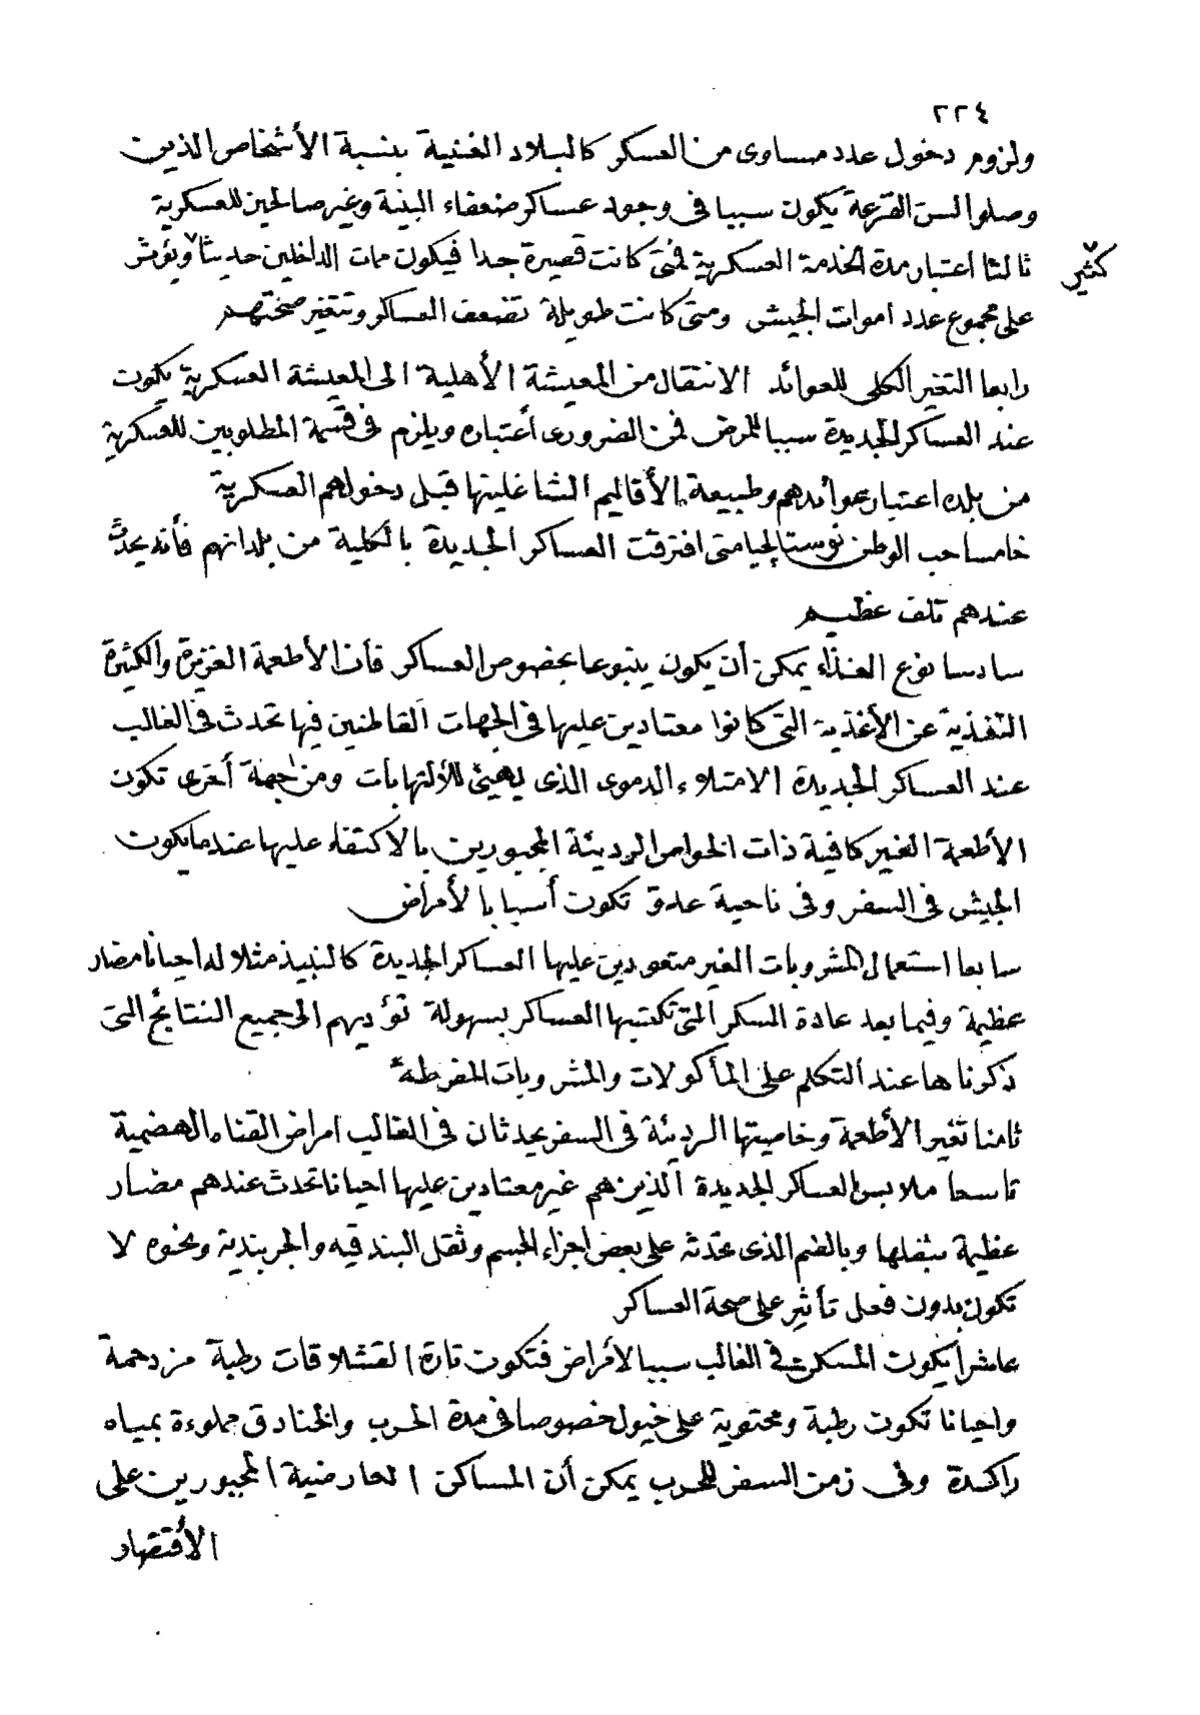 ٢٢٤
ولزوم دخول عدد مساوى من العسكر كالبلاد الغنية بنسبة الأشخاص الذين
وصلوا لسن القرعة يكون سببا فى وجود عساكر ضعفاء البنية وغير صالحين للعسكرية
ثالثا اعتبار مدة الخدمة العسكرية فمتى كانت قصيرة جدا فيكون ممات الداخلين حديثا ٧ ويؤثر
٧ كثير
على مجموع عدد اموات الجيش ومتى كانت طويلة تضعف العساكر وتتغير صحتهم
رابعا التغير الكلى للعوائد الانتقال من المعيشة الأهلية الى المعيشة العسكرية يكون
عند العساكر الجديدة سببا للمرض فمن الضرورى أعتباره ويلزم فى قسمة المطلوبين للعسكرية
من بلده اعتبار عوائدهم وطبيعة الأقاليم الشاغلينها قبل دخولهم العسكرية
خامسا حب الوطن نوستالجيا متى افترقت العساكر الجديدة بالكلية من بلدانهم فأنه يحدث
عندهم تلف عظيم
سادسا نوع الغذاء يمكن أن يكون ينبوعا بخصوص العساكر فأن الأطعمة الغزيرة والكثيرة
التغذية عن الأغذية التى كانوا معتادين عليها فى الجهات القاطنين فيها تحدث فى الغالب
عند العساكر الجديدة الامتلاء الدموى الذى يهيئ للألتهابات ومن جهة أخرى تكون
الأطعمة الغير كافية ذات الخواص الرديئة المجبورين بالاكتفاء عليها عندما يكون
الجيش فى السفر وفى ناحية عدو تكون أسبابا لأمراض
سابعا استعمال المشروبات الغير متعودين عليها العساكر الجديدة كالنبيذ مثلا له احيانا مضار
عظيمة وفيما بعد عادة السكر التى تكتسبها العساكر بسهولة تؤديهم الى جميع النتائج التى
ذكرناها عند التكلم على المأكولات والمشروبات المفرطة
ثامنا تغير الأطعمة وخاصيتها الرديئة فى السفر يحدثان فى الغالب امراض القناه الهضمية
تاسعا ملابس العساكر الجديدة الذين هم غير معتادين عليها احيانا تحدث عندهم مضار
عظيمة بثقلها وبالضم الذى تحدثه على بعض اجزاء الجسم وثقل البندقيه والجربندية ونحوه لا
تكون بدون فعل تأثير على صحة العساكر
عاشرا يكون المسكن فى الغالب سببا لأمراض فتكون تارة القشلاقات رطبة مزدحمة
واحيانا تكون رطبة ومحتوية على خيول خصوصا فى مدة الحرب والخنادق مملوءة بمياه
راكدة وفى زمن السفر للحرب يمكن أن المساكن العارضية المجبورين على
الأقتصار